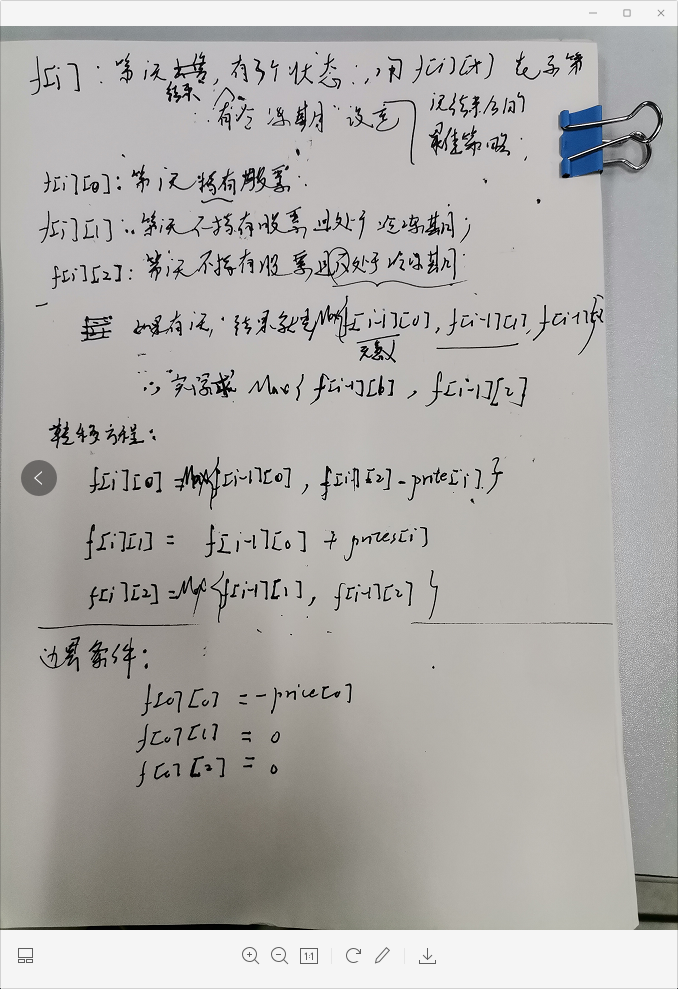 f[i]: 第i天结束, 有3个状态:, 用 f[i][x] 表示第
"有冷冻期"设定
i天结束后的
最佳策略;
f[i][0]: 第i天持有股票.
f[i][1]: 第i天不持有股票且处于冷冻期;
f[i][2]: 第i天不持有股票且不处于冷冻期;
如果有i天, 结果就是Max{f[i-1][0], f[i-1][1], f[i-1][2]
无意义
∴ Max{ f[i-1][1], f[i-1][2]
转移方程:
f[i][0] = Max{f[i-1][0], f[i-1][2] - price[i] }
f[i][1] = f[i-1][0] + prices[i]
f[i][2] = Max{f[i-1][1], f[i-1][2] }
边界条件:
f[0][0] = -price[0]
f[0][1] = 0
f[0][2] = 0
1:1